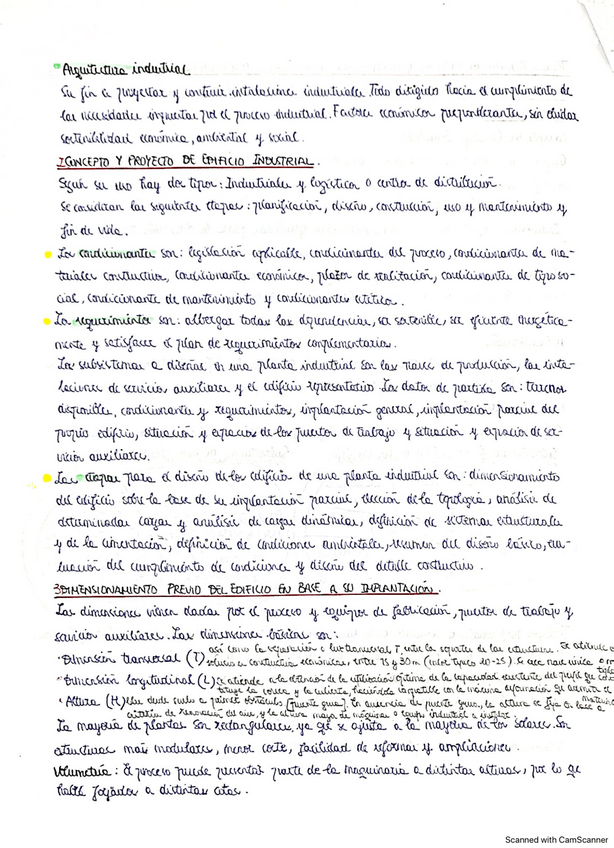 Arquitectura industrial
Su fin es proyectar y construir instalaciones industriales. Todo dirigido hacia el cumplimiento de
las necesidades impuestas por el proceso industrial. Factores económicos preponderantes, sin olvidar
sostenibilidad económica, ambiental y social.
1. CONCEPTO Y PROYECTO DE EDIFICIO INDUSTRIAL.
Según su uso hay dos tipos: Industriales y logísticos o centros de distribución.
Se consideran las siguientes etapas: planificación, diseño, construcción, uso y mantenimiento y
fin de vida.
Los condicionantes son: legislación aplicable, condicionantes del proceso, condicionantes de ma-
teriales constructivos, condicionantes económicos, plazos de realización, condicionantes de tipo so-
cial, condicionantes de mantenimiento y condicionantes estéticos.
Los requerimientos son: albergar todas las dependencias, ser sostenible, ser eficiente energética-
mente y satisfacer el plan de requerimientos complementarios.
Los subsistemas a diseñar en una planta industrial son las naves de producción, las insta-
laciones de servicios auxiliares y el edificio representativo. Los datos de partida son: terrenos
disponibles, condicionantes y requerimientos, implantación general, implantación parcial del
propio edificio, situación y espacios de los puertos de trabajo y situación y espacios de ser-
vicios auxiliares.
Las etapas para el diseño de los edificios de una planta industrial son: dimensionamiento
del edificio sobre la base de su implantación parcial, elección de la tipología, análisis de
determinadas cargas y análisis de cargas dinámicas, definición de sistemas estructurales
y de la cimentación, definición de condiciones ambientales, resumen del diseño básico, eva-
luación del cumplimiento de condiciones y diseño del detalle constructivo.
3. DIMENSIONAMIENTO PREVIO DEL EDIFICIO EN BASE A SU IMPLANTACIÓN.
Las dimensiones vienen dadas por el proceso y equipos de fabricación, puertos de trabajo y
servicios auxiliares. Las dimensiones básicas son:
· Dimensión transversal (T) así como la separación e luz transversal T, entre los soportes de las estructuras.
soluciones constructivas económicas, entre 15 y 30 m
· Dimensión longitudinal (L) se atiende a la obtención de la utilización óptima de la capacidad
· Altura (H) libre desde suelo a primer obstáculo [puente grúa]. En ausencia de puente grúa, la altura se fija en base a
criterios de renovación del aire, y la altura maya de máquinas o equipo industrial a instalar.
La mayoría de plantas son rectangulares, ya que se ajusta a la mayoría de los solares. Son
estructuras más modulares, menor coste, facilidad de reformas y ampliaciones.
Volumetría: El proceso puede presentar parte de la maquinaria a distintas alturas, por lo que
habrá forjados a distintas cotas.
Scanned with CamScanner